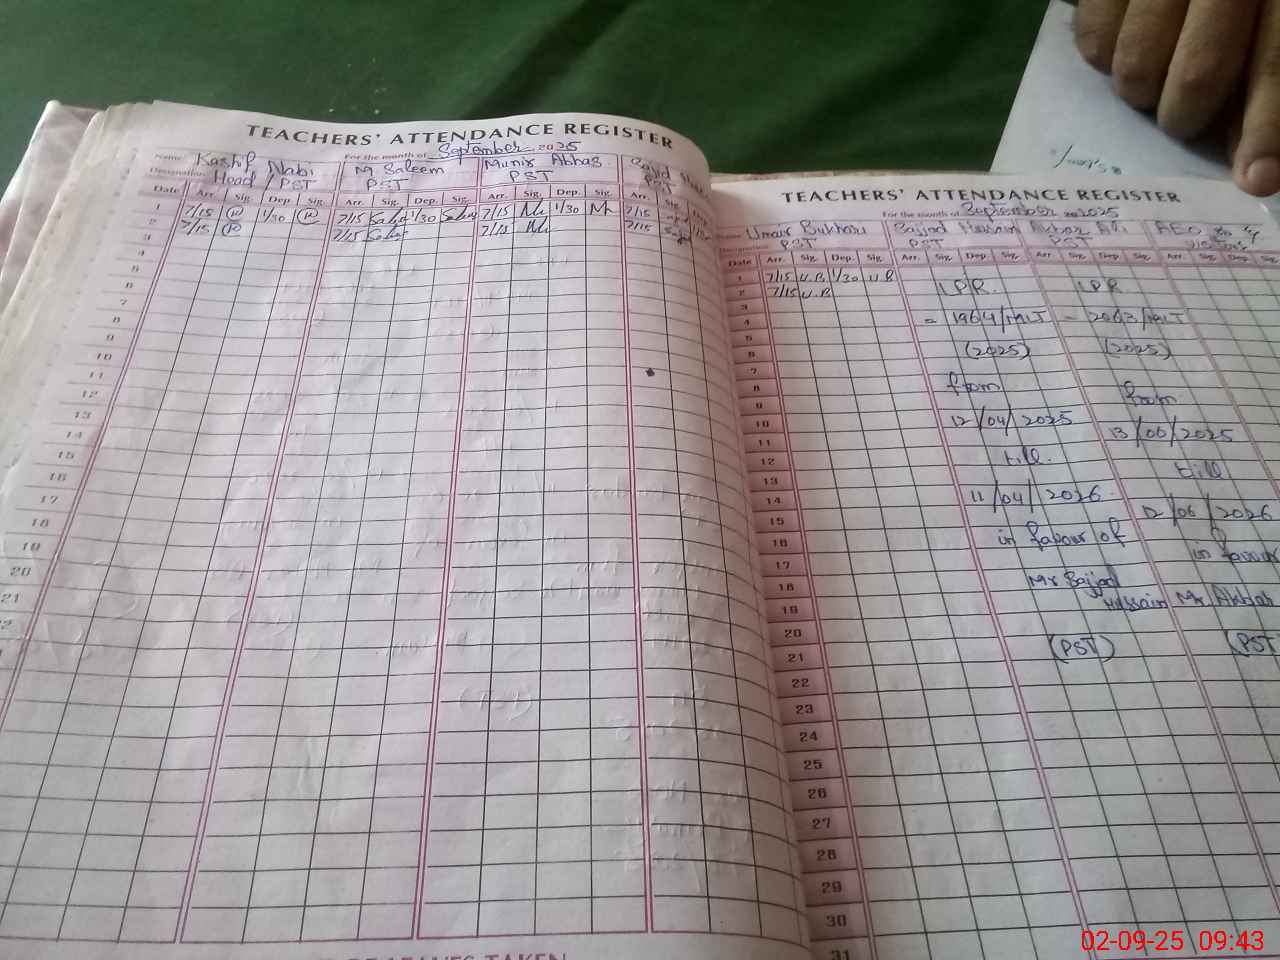 TEACHERS' ATTENDANCE REGISTER
Name Kashif Nabi For the month of September 2025
M Saleem Munir Abbas Sajid
Designation Head / PST PST PST PST
Date Arr. Sig. Dep. Sig. Arr. Sig. Dep. Sig. Arr. Sig. Dep. Sig. Arr. Sig. Dep.
1 7/15 1/30 7/15 1/30 7/15 1/30 7/15
2 7/15 7/15 7/15 7/15
3
4
5
6
7
8
9
10
11
12
13
14
15
16
17
18
19
20
21
TEACHERS' ATTENDANCE REGISTER
For the month of September 2025
Umair Bukhari Sajjad Hussain Akbar Ali AEO
Designation PST PST PST visitors
Date Arr. Sig. Dep. Sig. Arr. Sig. Dep. Sig. Arr. Sig. Dep. Sig. Arr. Sig. Dep. Sig.
1 7/15 U.B 1/30 U B LPR. LPR
2 7/15 U.B
3
4 = 1964/MLT - 2063/MLT
5
6 (2025) (2025)
7
8 from from
9
10 12/04/2025 13/06/2025
11
12 till. till
13
14 11/04/2026. 12/06/2026
15
16 in favour of in favour
17
18 Mr Sajjad
19 Hussain Mr. Akbar
20 (PST) (PST
21
22
23
24
25
26
27
28
29
30
31
02-09-25 09:43